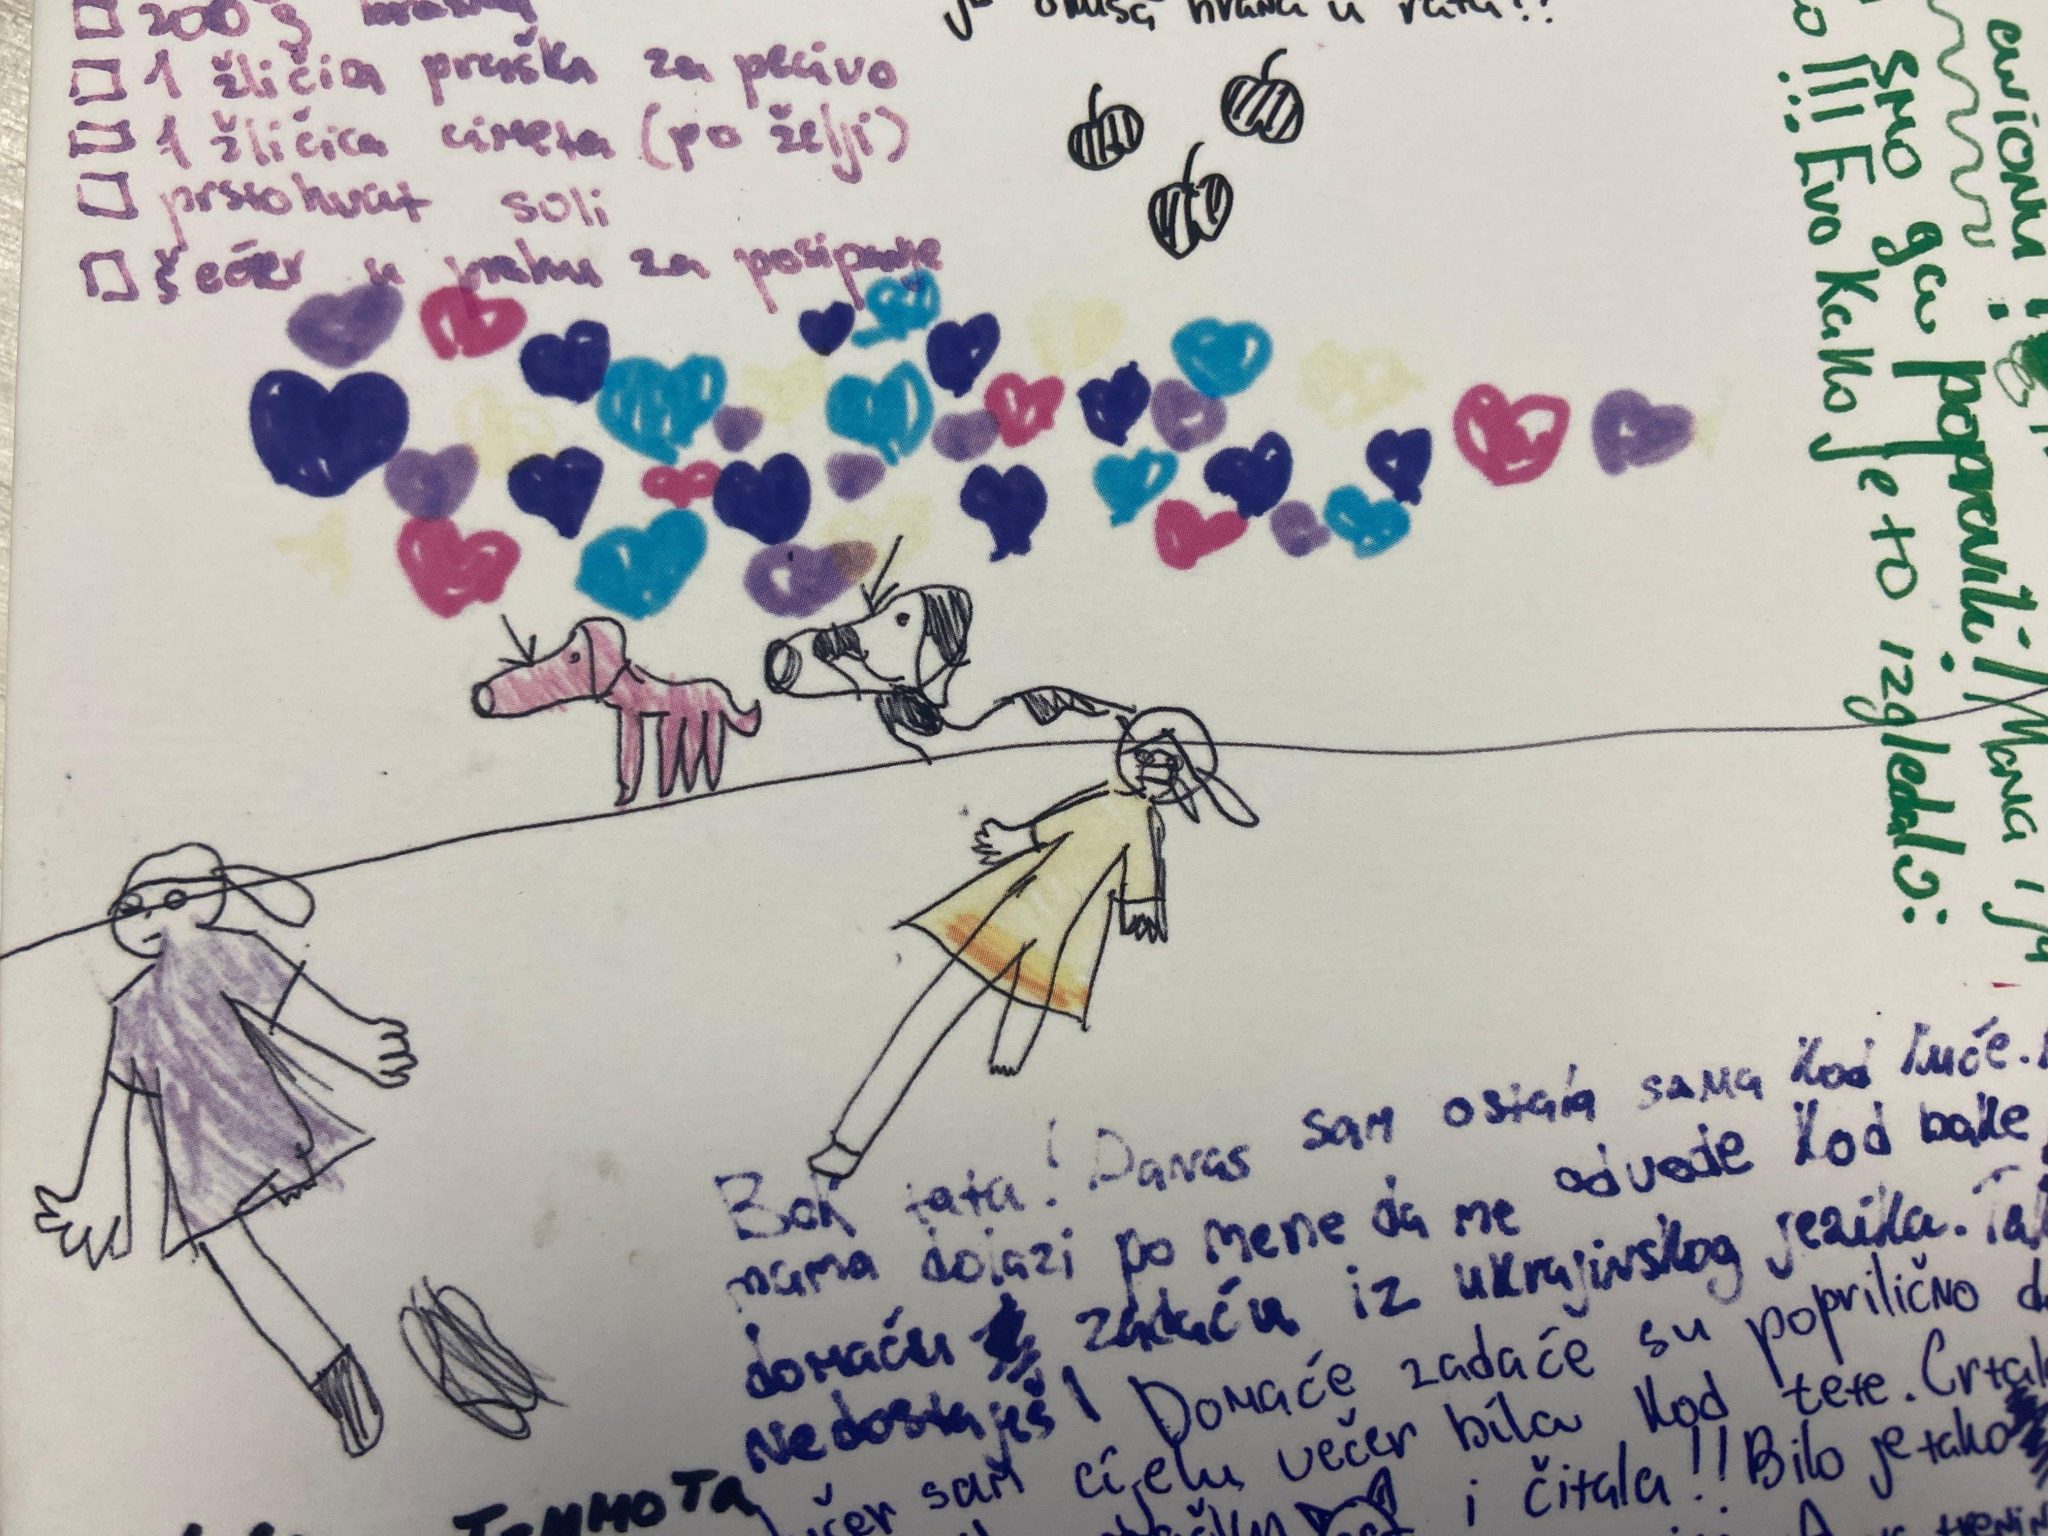 200 g
1 žličica praška za pecivo
1 žličica cimeta (po želji)
prstohvat soli
šećer u prahu za posipanje
je okusa hrana u ratu!!
smo ga popravili! Mama i
!!! Evo kako je to izgledalo:
Bok tata! Danas sam ostala sama kod kuće.
mama dolazi po mene da me odvede kod bake
domaću zadaću iz ukrajinskog jezika.
Nedostaješ! Domaće zadaće su poprilično
sam cijelu večer bila kod tete.
i čitala!! Bilo je tako